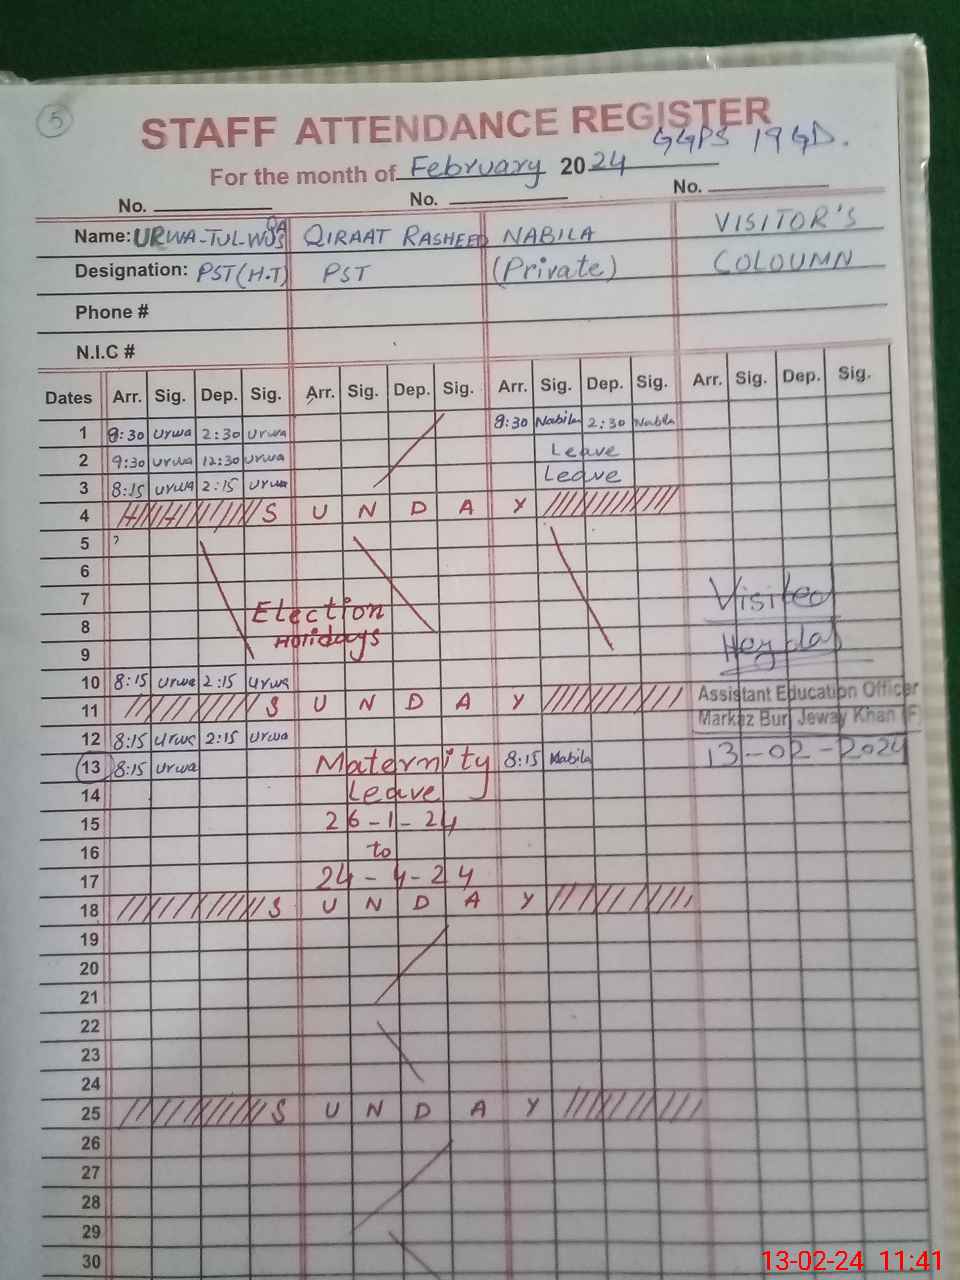 5
STAFF ATTENDANCE REGISTER
GGPS 19GD.
For the month of February 2024
No. No. No.
Name: URWA-TUL-WUSQA QIRAAT RASHEED NABILA VISITOR'S
Designation: PST(H.T) PST (Private) COLOUMN
Phone #
N.I.C #
Dates Arr. Sig. Dep. Sig. Arr. Sig. Dep. Sig. Arr. Sig. Dep. Sig. Arr. Sig. Dep. Sig.
1 8:30 Urwa 2:30 Urwa 8:30 Nabila 2:30 Nabila
2 9:30 Urwa 12:30 Urwa Leave
3 8:15 Urwa 2:15 Urwa Leave
4 S U N D A Y
5
6
7 Visited
8 Election
9 Holidays
10 8:15 Urwa 2:15 Urwa Assistant Education Officer
11 S U N D A Y Markaz Burj Jeway Khan (F)
12 8:15 Urwa 2:15 Urwa 13-02-2024
13 8:15 Urwa Maternity 8:15 Nabila
14 Leave
15 26-1-24
16 to
17 24-4-24
18 S U N D A Y
19
20
21
22
23
24
25 S U N D A Y
26
27
28
29
30
13-02-24 11:41